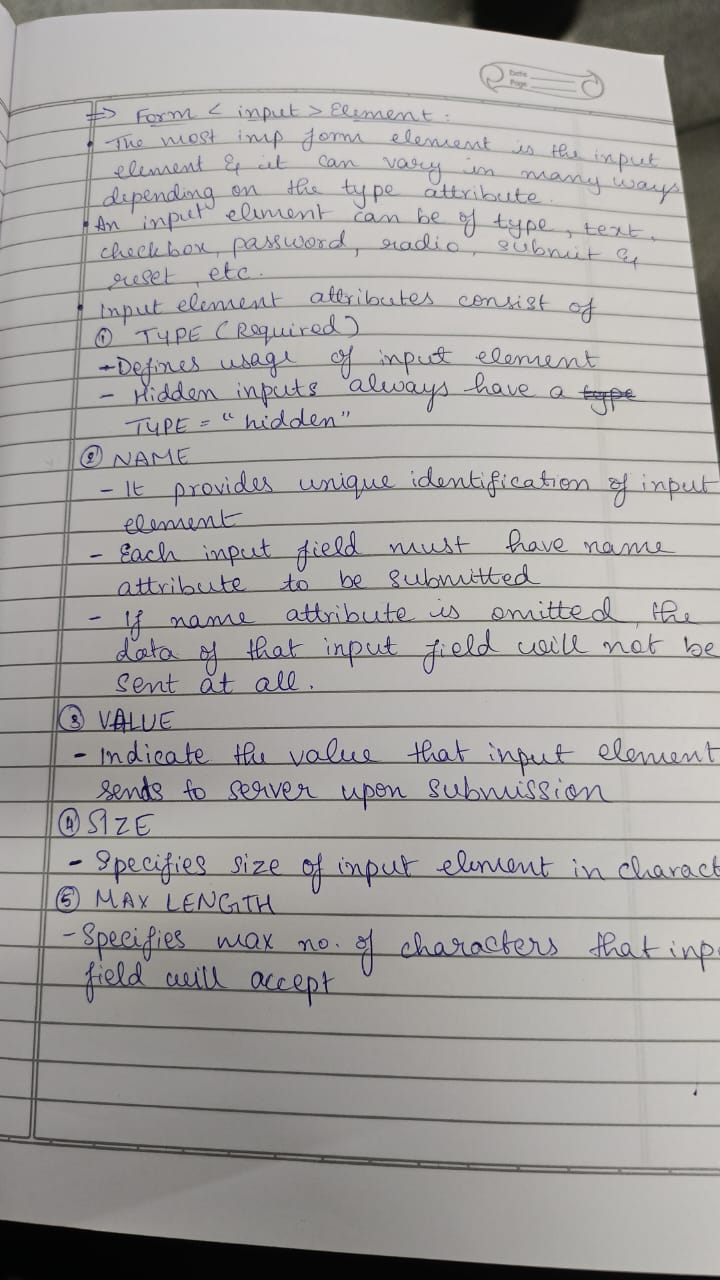 Date
Page
=> Form < input > Element :
• The most imp form element is the input
element & it can vary in many ways
depending on the type attribute.
• An input element can be of type, text,
checkbox, password, radio, submit &
reset, etc.
• Input element attributes consist of
① TYPE (Required)
- Defines usage of input element
- Hidden inputs always have a type
TYPE = "hidden"
② NAME
- It provides unique identification of input
element
- Each input field must have name
attribute to be submitted
- If name attribute is omitted, the
data of that input field will not be
sent at all.
③ VALUE
- Indicate the value that input element
sends to server upon submission
④ SIZE
- Specifies size of input element in charact
⑤ MAX LENGTH
- Specifies max no. of characters that inp
field will accept